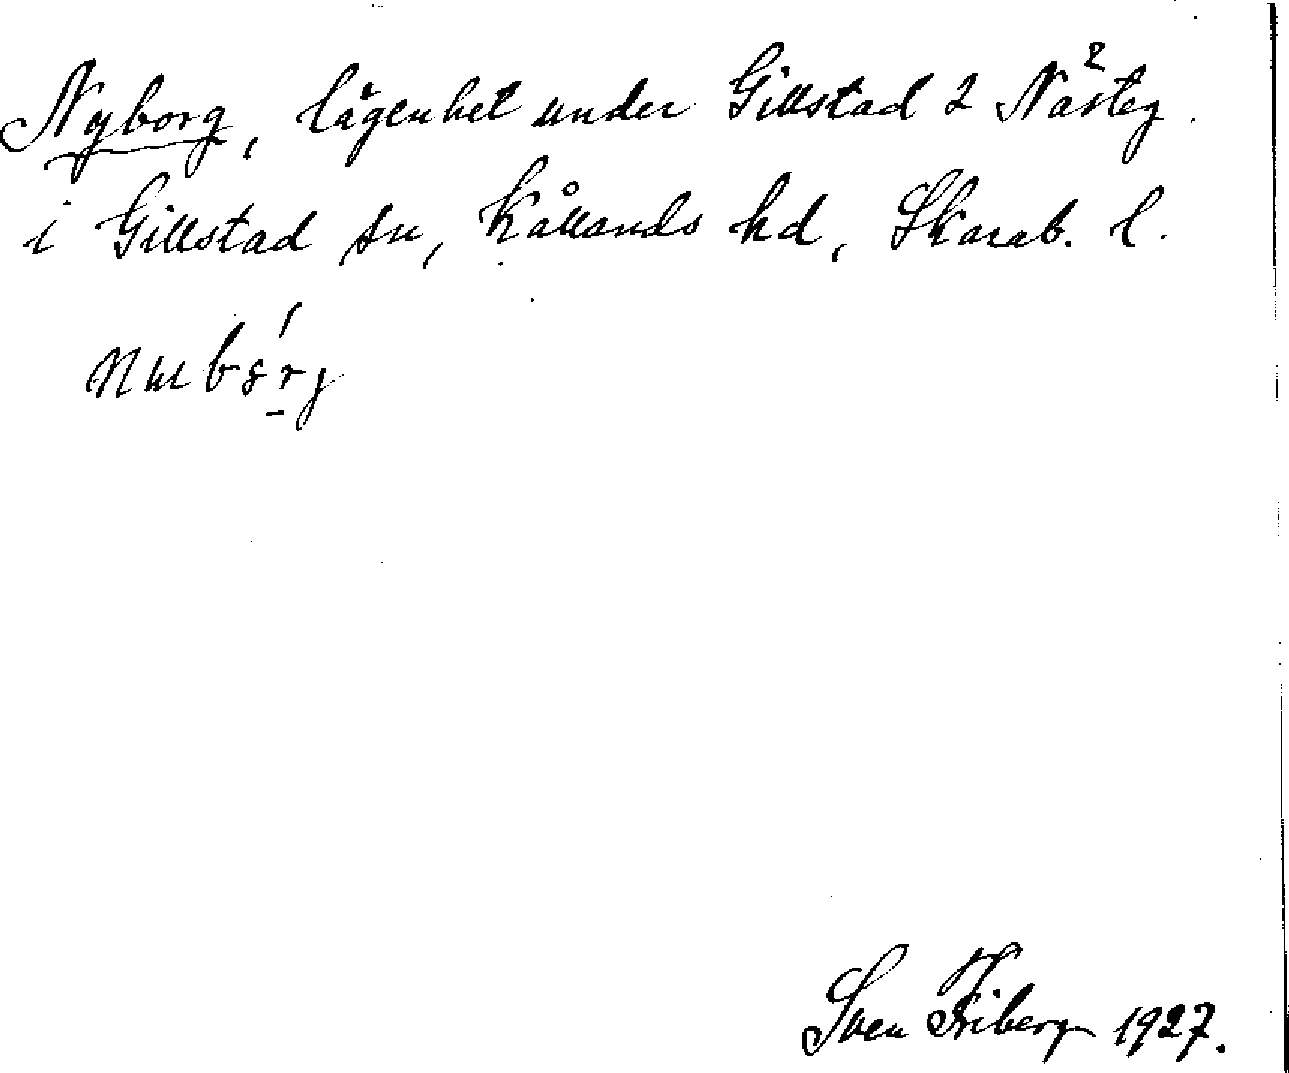 Nyborg, lägenhet under Gillstad 2 Nästeg.
i Gillstad sn, Kållands hd, Skarab. l.
Sven Friberg 1927.